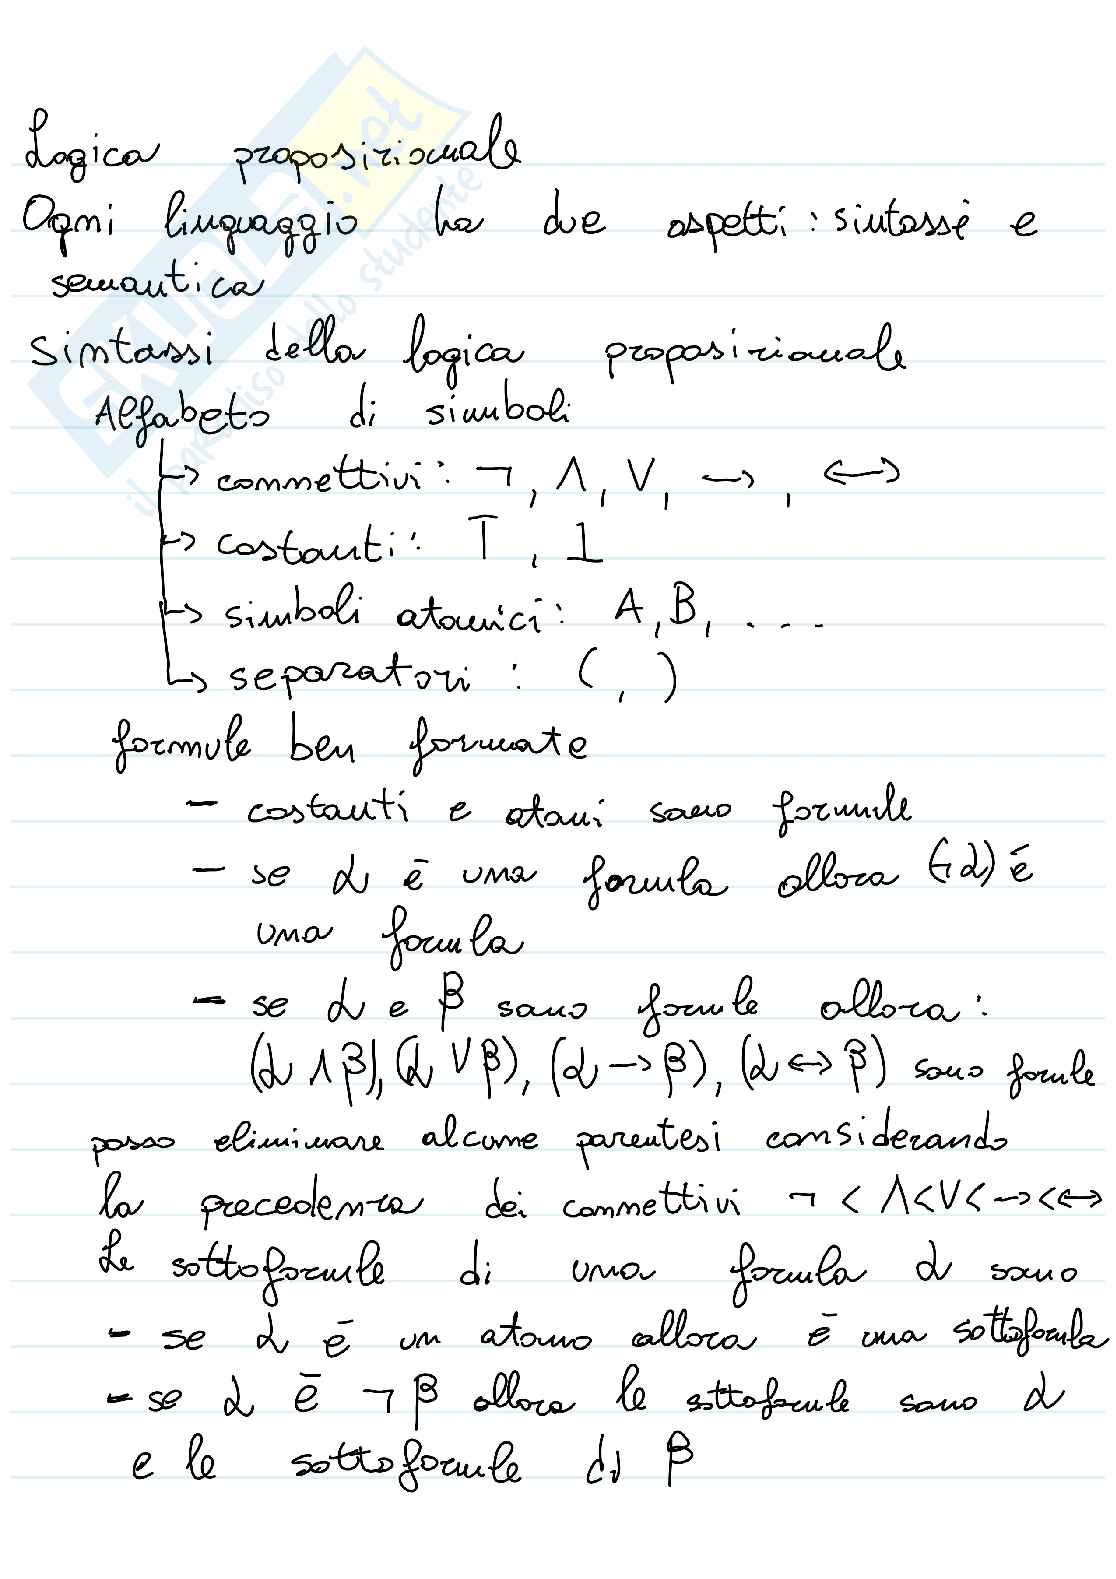 Logica proposizionale
Ogni linguaggio ha due aspetti: sintassi e
semantica
Sintassi della logica proposizionale
Alfabeto di simboli
↳ connettivi: ¬, ∧, ∨, →, ↔
↳ costanti: ⊤, ⊥
↳ simboli atomici: A, B, ....
↳ separatori: (, )
formule ben formate
- costanti e atomi sono formule
- se α è una formula allora (¬α) è
una formula
- se α e β sono formule allora:
(α ∧ β), (α ∨ β), (α → β), (α ↔ β) sono formule
posso eliminare alcune parentesi considerando
la precedenza dei connettivi ¬ < ∧ < ∨ < → < ↔
Le sottoformule di una formula α sono
- se α è un atomo allora è una sottoformula
- se α è ¬β allora le sottoformule sono α
e le sottoformule di β
SKUOLA.net
il paradiso dello studente